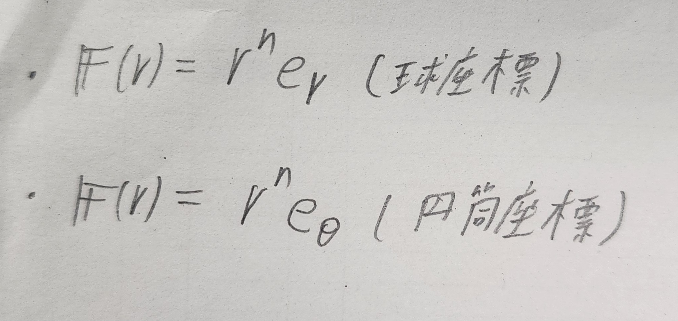 ・ 𝔽(r) = rⁿ eᵣ (球座標)
・ 𝔽(r) = rⁿ e_θ (円筒座標)